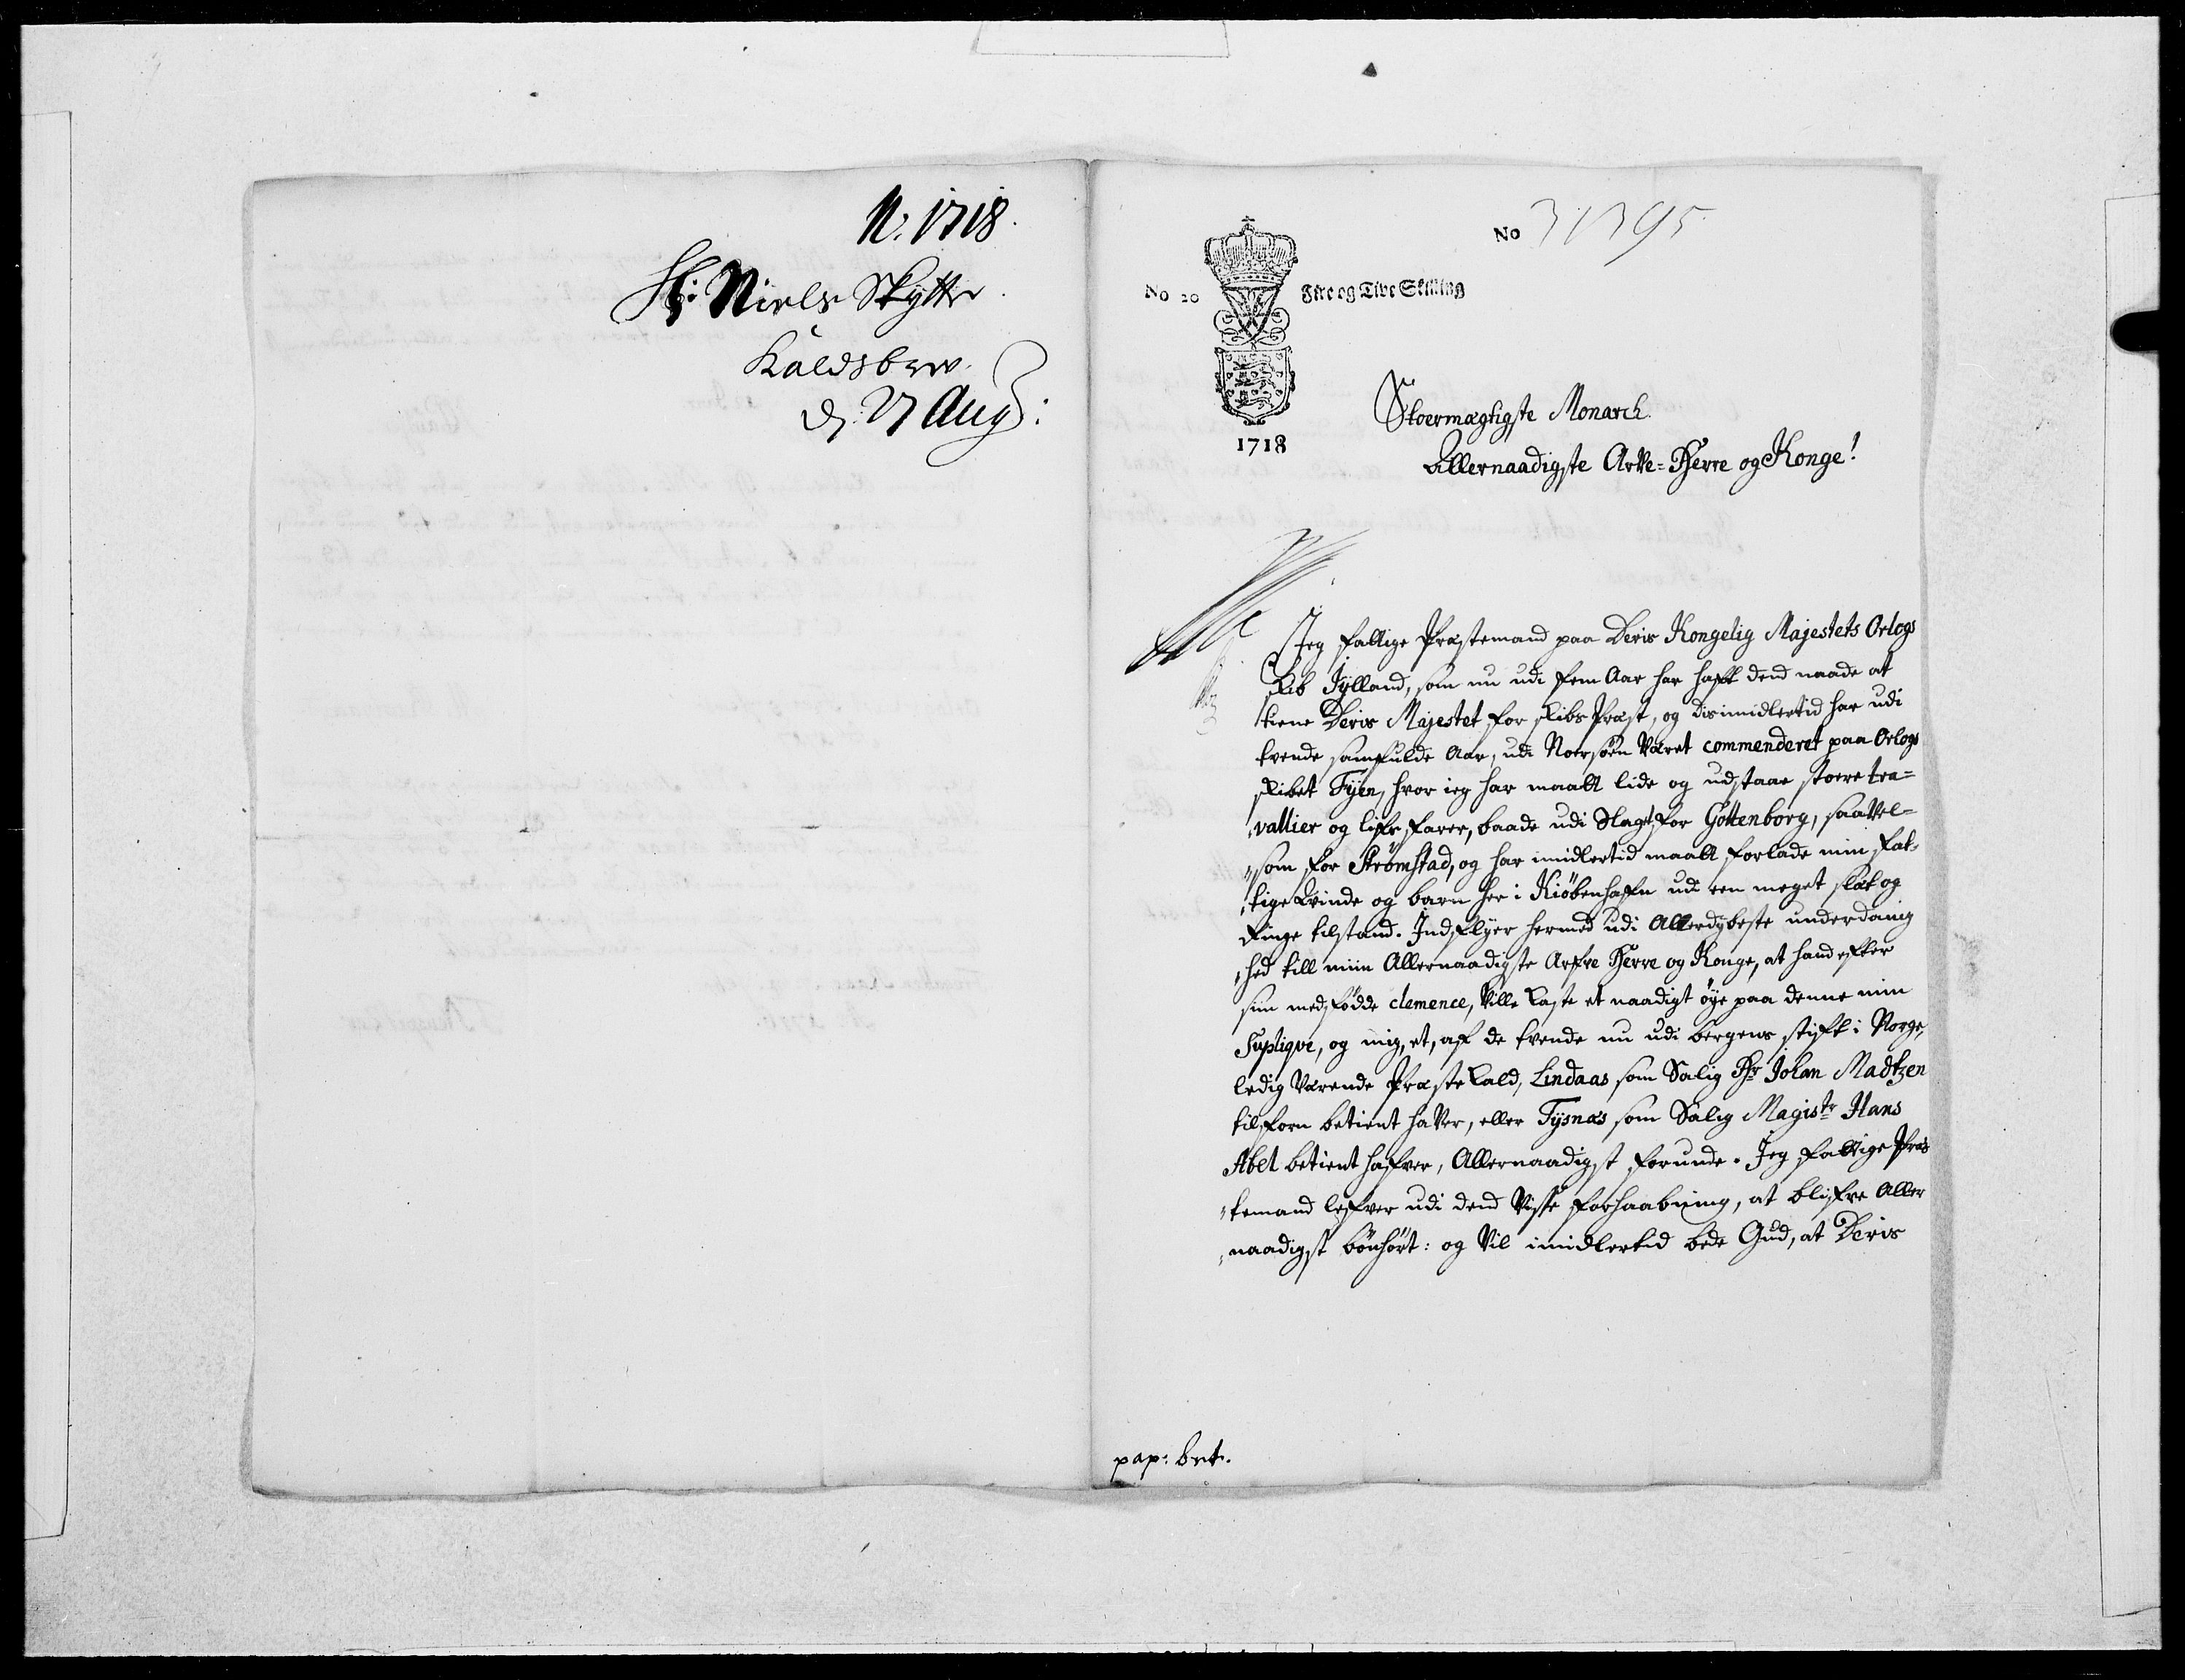 N. 1718.
Hr: Niels Skytte
Kaldsbrev.
d. 27 Aug:
No 31395
No 20 Fire og Tive Skilling
1718
Stoermægtigste Monarch
Allernaadigste Arve-Herre og Konge!
Jeg fattige Præstemand paa Deris Kongelig Majestets Orlogs
skib Jÿlland, som nu udi fem Aar har hafft dend naade at
tiene Deris Majestet for skibs Præst, og disimidlertid har udi
tvende samfulde Aar, udi Norsøen Været commenderet paa Orlogs
skibet Fÿen, hvor ieg har maatt lide og udstaae stoere tra=
vallier og lifs farer, baade udi Slaget for Gøttenborg, saavel=
som for Strømstad, og har imidlertid maatt forlade min fat=
tige Qvinde og barn her i Kiøbenhafn udi een meget slæt og
Ringe tilstand. Indflyer hermed udi Allerdybeste underdanig
hed till miin Allernaadigste Arfve Herre og Konge, at hand efter
siin medfødde clemence, Ville Kaste et naadigt øye paa denne min
Supliqve, og mig, et, af de tvende nu udi bergens stift i Norge,
ledig Værende Præste Kald, Lindaas som Salig Hr Johan Madtzen
tilforn betient haver, eller Tysnæs som Salig Magistr Hans
Abel betient hafver, Allernaadigst forunde. Jeg fattige Præs
temand lefver udi dend Visse forhaabning, at blifve Aller
naadigst bønhørt: og Vil imidlertid bede Gud, at Deris
pap: bet.